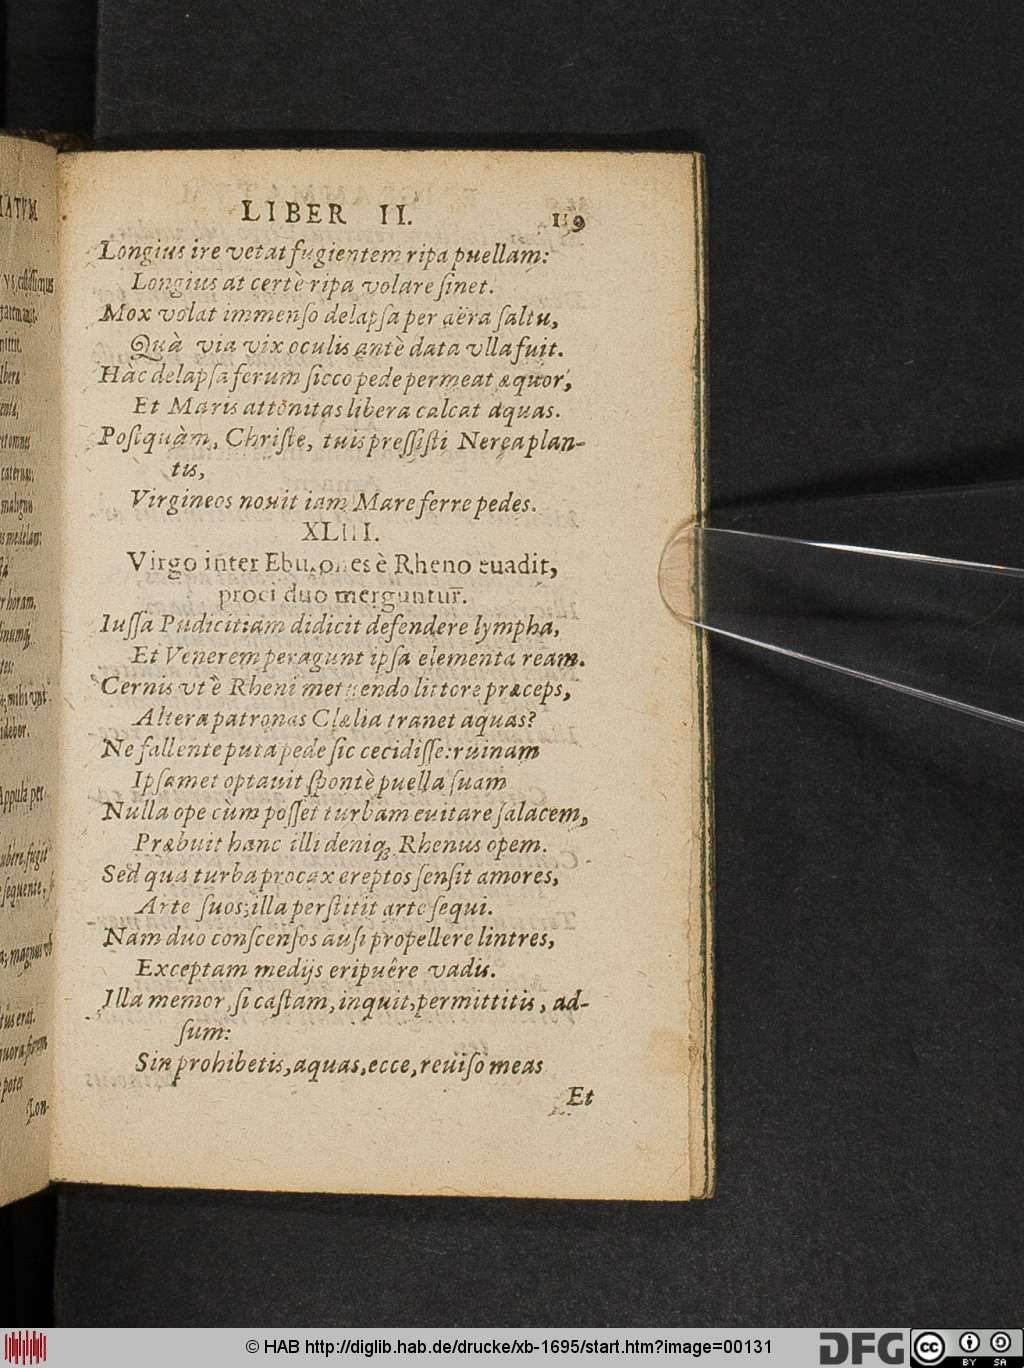 LIBER II. 119
Longius ire vetat fugientem ripa puellam:
Longius at certè ripa volare ſinet.
Mox volat immenſo delapſa per aëra ſaltu,
Quà via vix oculis antè data vlla fuit.
Hàc delapſa ferum ſicco pede permeat æquor,
Et Maris attonitas libera calcat aquas.
Poſtquàm, Chriſte, tuis preſſiſti Nerea plan-
tis,
Virgineos nouit iam Mare ferre pedes.
XLIII.
Virgo inter Eburones è Rheno euadit,
proci duo merguntur.
Iuſſa Pudicitiam didicit defendere lympha,
Et Venerem peragunt ipſa elementa ream.
Cernis vt è Rheni metuendo littore præceps,
Altera patronas Clælia tranet aquas?
Ne fallente puta pede ſic cecidiſſe: ruinam
Ipſamet optauit ſpontè puella ſuam
Nulla ope cùm poſſet turbam euitare ſalacem,
Præbuit hanc illi deniq; Rhenus opem.
Sed qua turba procax ereptos ſenſit amores,
Arte ſuos; illa perſtitit arte ſequi.
Nam duo conſcenſos auſi propellere lintres,
Exceptam medijs eripuêre vadis.
Illa memor, ſi caſtam, inquit, permittitis, ad-
ſum:
Sin prohibetis, aquas, ecce, reuiſo meas
Et
IATVM
Appula per
Lon-
© HAB http://diglib.hab.de/drucke/xb-1695/start.htm?image=00131
DFG
cc
BY SA